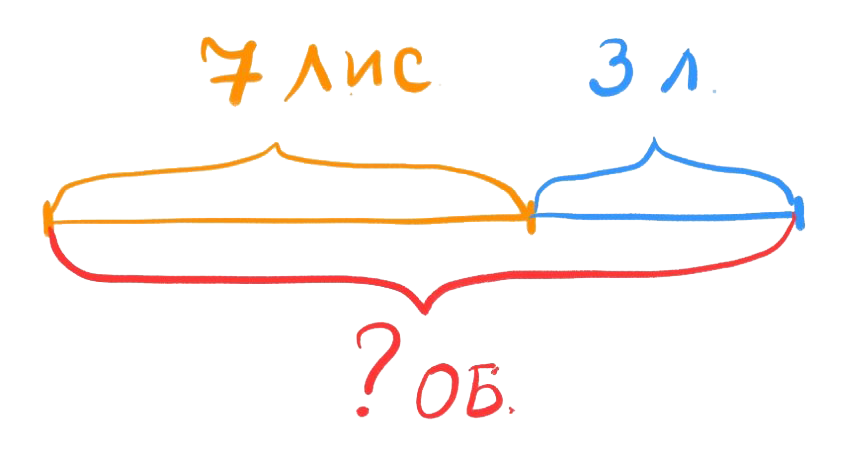 7 лис 3 л.
? ОБ.